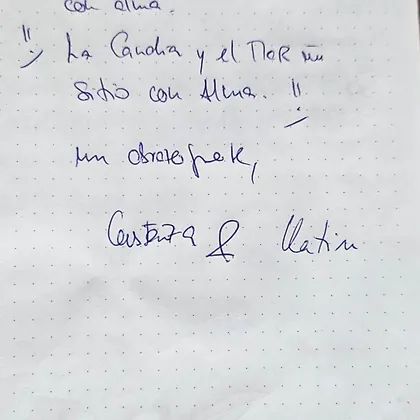 con alma.
" La Candela y el Mar un
Sitio con Alma. "
un abrazo
Constanza & Martin